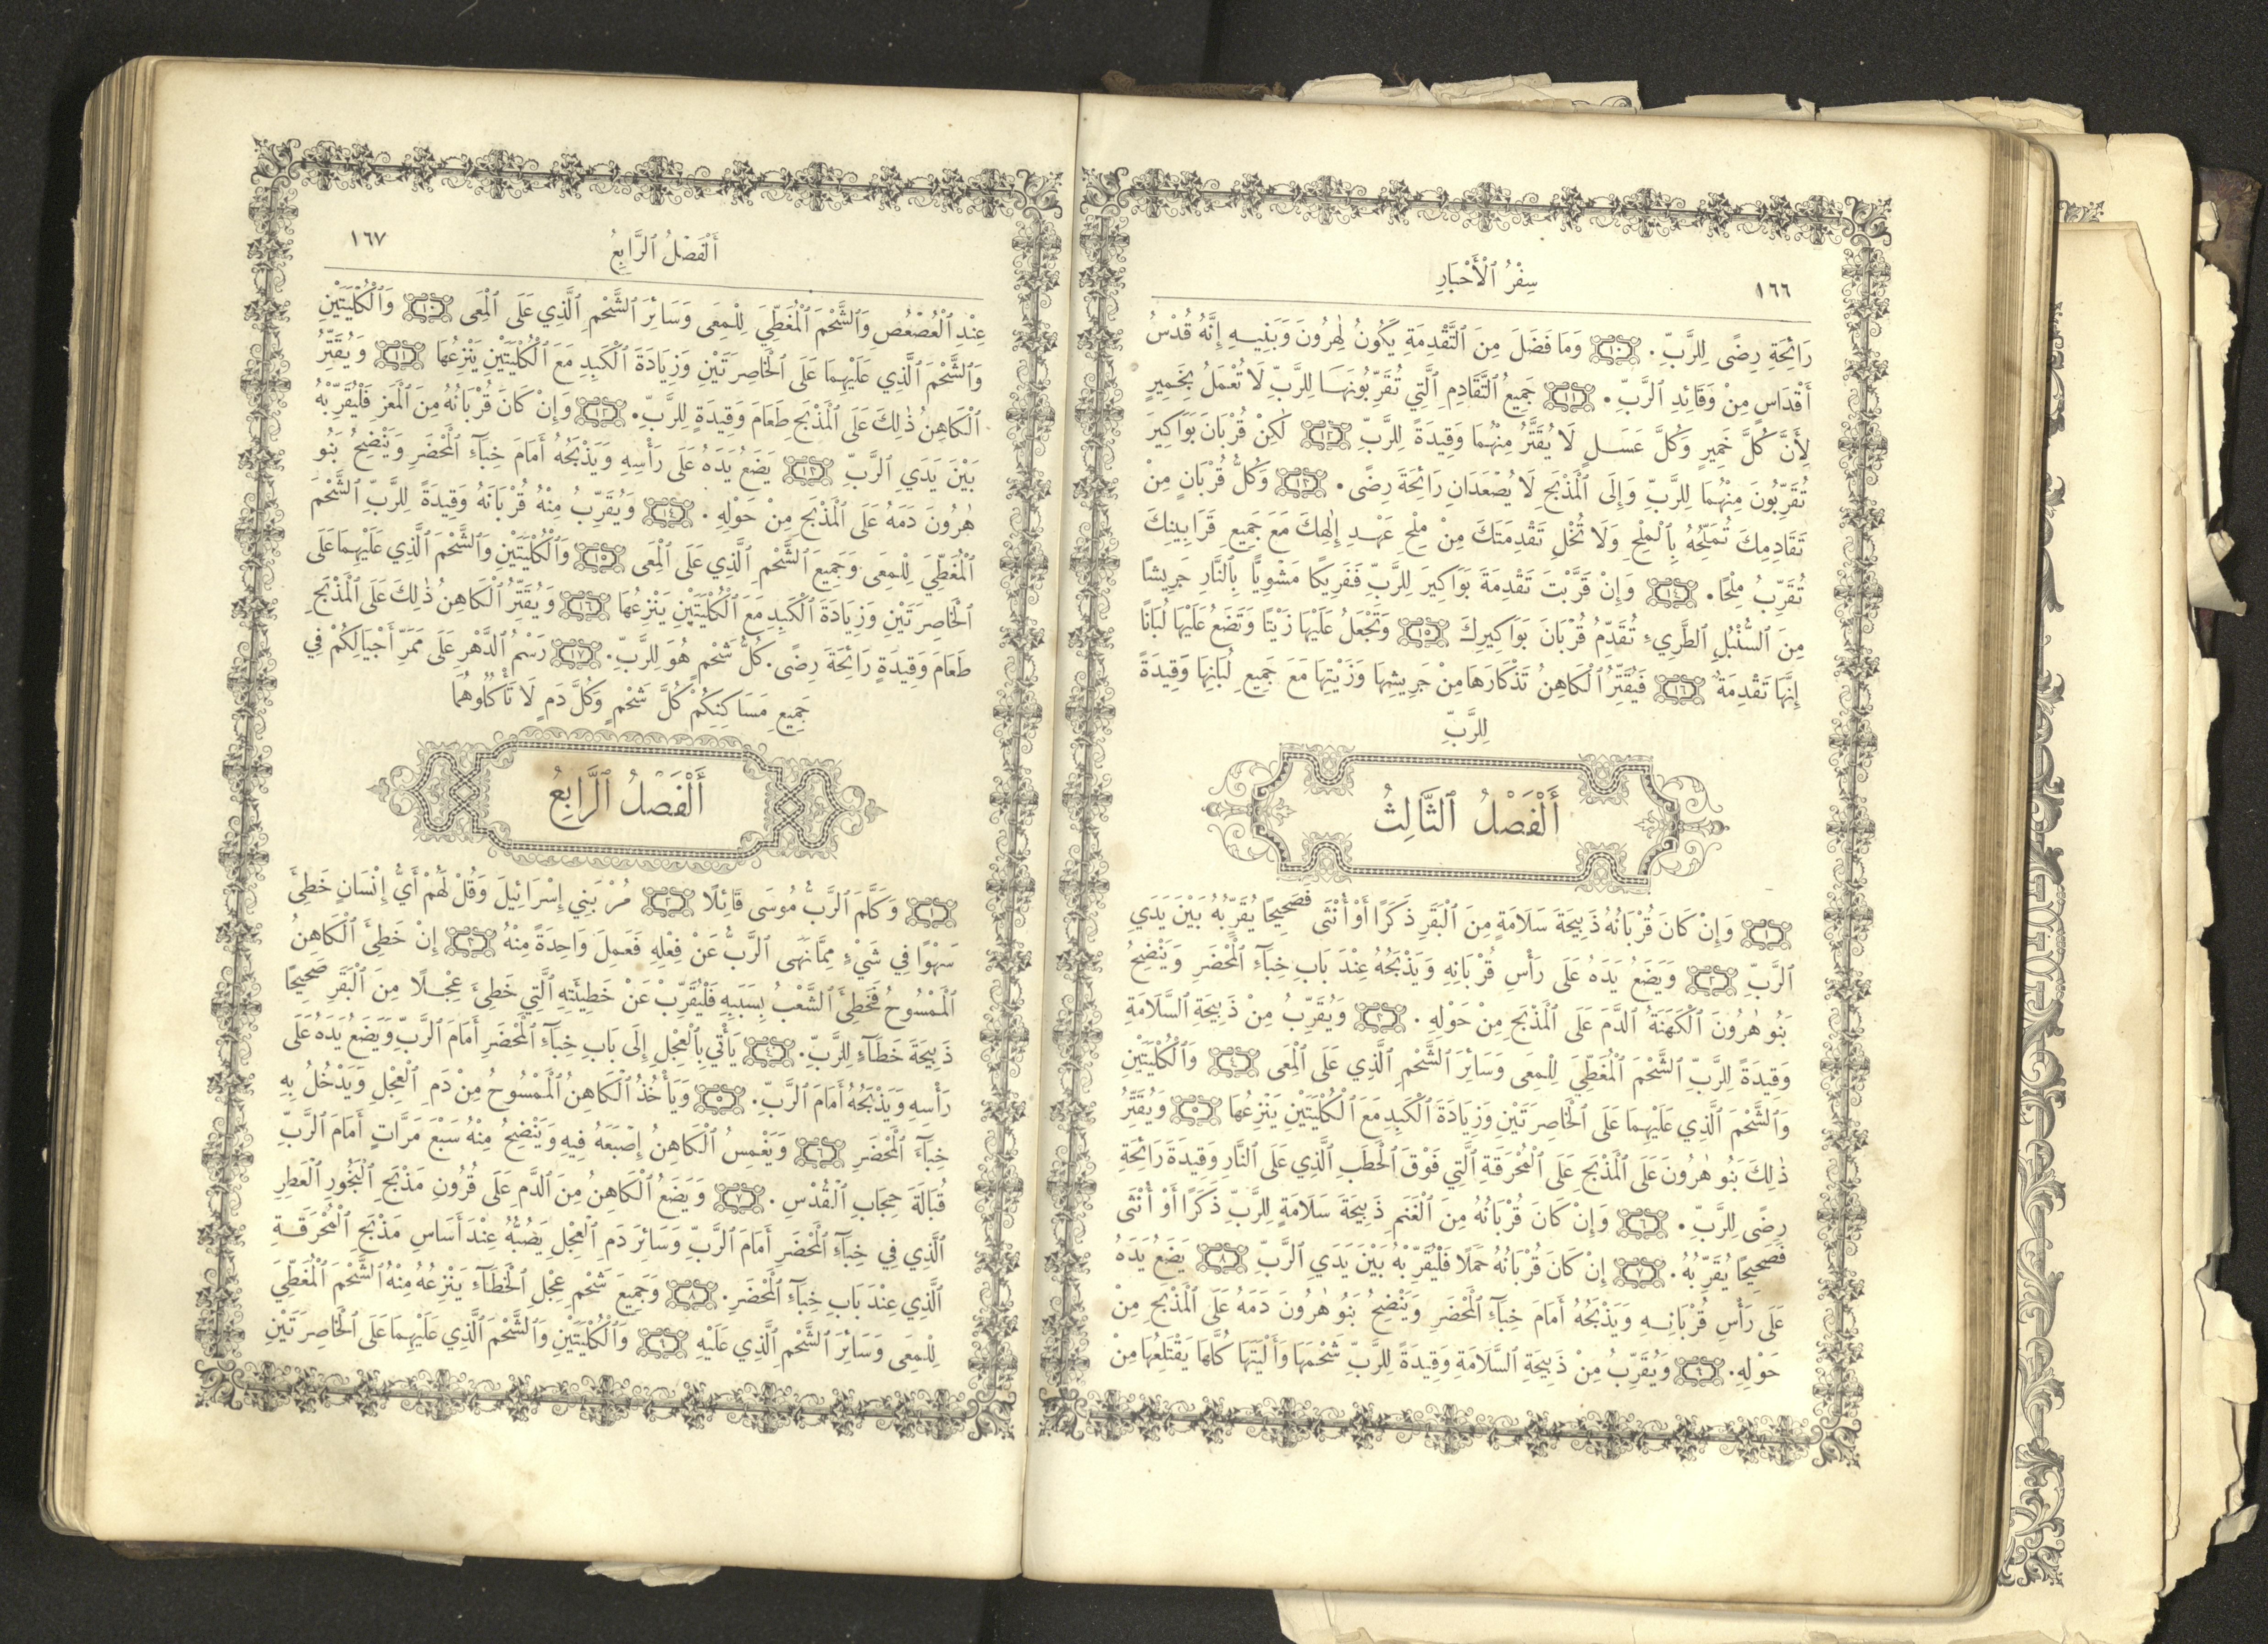 ١٦٦
سِفْرُ ٱلْأَحْبَارِ
رَائِحَةِ رِضًى لِلرَّبِّ. ١٠ وَمَا فَضَلَ مِنَ ٱلتَّقْدِمَةِ يَكُونُ لِهٰرُونَ وَبَنِيهِ إِنَّهُ قُدْسُ
أَقْدَاسٍ مِنْ وَقَائِدِ ٱلرَّبِّ. ١١ جَمِيعُ ٱلتَّقَادِمِ ٱلَّتِي تُقَرِّبُونَهَا لِلرَّبِّ لَا تُعْمَلُ بِخَمِيرٍ
لِأَنَّ كُلَّ خَمِيرٍ وَكُلَّ عَسَلٍ لَا يُقَتَّرُ مِنْهُمَا وَقِيدَةً لِلرَّبِّ ١٢ لٰكِنْ قُرْبَانَ بَوَاكِيرَ
تُقَرِّبُونَ مِنْهُمَا لِلرَّبِّ وَإِلَى ٱلْمَذْبَحِ لَا يُصْعَدَانِ رَائِحَةَ رِضًى. ١٣ وَكُلُّ قُرْبَانٍ مِنْ
تَقَادِمِكَ تُمَلِّحُهُ بِٱلْمِلْحِ وَلَا تُخْلِ تَقْدِمَتَكَ مِنْ مِلْحِ عَهْدِ إِلٰهِكَ مَعَ جَمِيعِ قَرَابِينِكَ
تُقَرِّبُ مِلْحًا. ١٤ وَإِنْ قَرَّبْتَ تَقْدِمَةَ بَوَاكِيرَ لِلرَّبِّ فَفَرِيكًا مَشْوِيًّا بِٱلنَّارِ جَرِيشًا
مِنَ ٱلسُّنْبُلِ ٱلطَّرِيءِ تُقَدِّمُ قُرْبَانَ بَوَاكِيرِكَ ١٥ وَتَجْعَلُ عَلَيْهَا زَيْتًا وَتَضَعُ عَلَيْهَا لُبَانًا
إِنَّهَا تَقْدِمَةٌ ١٦ فَيُقَتِّرُ ٱلْكَاهِنُ تَذْكَارَهَا مِنْ جَرِيشِهَا وَزَيْتِهَا مَعَ جَمِيعِ لُبَانِهَا وَقِيدَةً
لِلرَّبِّ
أَلْفَصْلُ ٱلثَّالِثُ
١ وَإِنْ كَانَ قُرْبَانُهُ ذَبِيحَةَ سَلَامَةٍ مِنَ ٱلْبَقَرِ ذَكَرًا أَوْ أُنْثَى فَصَحِيحًا يُقَرِّبُهُ بَيْنَ يَدَيِ
ٱلرَّبِّ ٢ وَيَضَعُ يَدَهُ عَلَى رَأْسِ قُرْبَانِهِ وَيَذْبَحُهُ عِنْدَ بَابِ خِبَآءِ ٱلْمَحْضَرِ وَيَنْضِحُ
بَنُو هٰرُونَ ٱلْكَهَنَةُ ٱلدَّمَ عَلَى ٱلْمَذْبَحِ مِنْ حَوْلِهِ. ٣ وَيُقَرِّبُ مِنْ ذَبِيحَةِ ٱلسَّلَامَةِ
وَقِيدَةً لِلرَّبِّ ٱلشَّحْمَ ٱلْمُغَطِّيَ لِلْمِعَى وَسَائِرَ ٱلشَّحْمِ ٱلَّذِي عَلَى ٱلْمِعَى ٤ وَٱلْكُلْيَتَيْنِ
وَٱلشَّحْمَ ٱلَّذِي عَلَيْهِمَا عَلَى ٱلْخَاصِرَتَيْنِ وَزِيَادَةَ ٱلْكَبِدِ مَعَ ٱلْكُلْيَتَيْنِ يَنْزِعُهَا ٥ وَيُقَتِّرُ
ذٰلِكَ بَنُو هٰرُونَ عَلَى ٱلْمَذْبَحِ عَلَى ٱلْمُحْرَقَةِ ٱلَّتِي فَوْقَ ٱلْحَطَبِ ٱلَّذِي عَلَى ٱلنَّارِ وَقِيدَةَ رَائِحَةِ
رِضًى لِلرَّبِّ. ٦ وَإِنْ كَانَ قُرْبَانُهُ مِنَ ٱلْغَنَمِ ذَبِيحَةَ سَلَامَةٍ لِلرَّبِّ ذَكَرًا أَوْ أُنْثَى
فَصَحِيحًا يُقَرِّبُهُ. ٧ إِنْ كَانَ قُرْبَانُهُ حَمَلًا فَلْيُقَرِّبْهُ بَيْنَ يَدَيِ ٱلرَّبِّ ٨ يَضَعُ يَدَهُ
عَلَى رَأْسِ قُرْبَانِهِ وَيَذْبَحُهُ أَمَامَ خِبَآءِ ٱلْمَحْضَرِ وَيَنْضِحُ بَنُو هٰرُونَ دَمَهُ عَلَى ٱلْمَذْبَحِ مِنْ
حَوْلِهِ. ٩ وَيُقَرِّبُ مِنْ ذَبِيحَةِ ٱلسَّلَامَةِ وَقِيدَةً لِلرَّبِّ شَحْمَهَا وَأَلْيَتَهَا كُلَّهَا يَقْتَلِعُهَا مِنْ
أَلْفَصْلُ ٱلرَّابِعُ
١٦٧
عِنْدِ ٱلْعُصْعُصِ وَٱلشَّحْمَ ٱلْمُغَطِّيَ لِلْمِعَى وَسَائِرَ ٱلشَّحْمِ ٱلَّذِي عَلَى ٱلْمِعَى ١٠ وَٱلْكُلْيَتَيْنِ
وَٱلشَّحْمَ ٱلَّذِي عَلَيْهِمَا عَلَى ٱلْخَاصِرَتَيْنِ وَزِيَادَةَ ٱلْكَبِدِ مَعَ ٱلْكُلْيَتَيْنِ يَنْزِعُهَا ١١ وَيُقَتِّرُ
ٱلْكَاهِنُ ذٰلِكَ عَلَى ٱلْمَذْبَحِ طَعَامَ وَقِيدَةٍ لِلرَّبِّ. ١٢ وَإِنْ كَانَ قُرْبَانُهُ مِنَ ٱلْمَعَزِ فَلْيُقَرِّبْهُ
بَيْنَ يَدَيِ ٱلرَّبِّ ١٣ يَضَعُ يَدَهُ عَلَى رَأْسِهِ وَيَذْبَحُهُ أَمَامَ خِبَآءِ ٱلْمَحْضَرِ وَيَنْضِحُ بَنُو
هٰرُونَ دَمَهُ عَلَى ٱلْمَذْبَحِ مِنْ حَوْلِهِ. ١٤ وَيُقَرِّبُ مِنْهُ قُرْبَانَهُ وَقِيدَةً لِلرَّبِّ ٱلشَّحْمَ
ٱلْمُغَطِّيَ لِلْمِعَى وَجَمِيعَ ٱلشَّحْمِ ٱلَّذِي عَلَى ٱلْمِعَى ١٥ وَٱلْكُلْيَتَيْنِ وَٱلشَّحْمَ ٱلَّذِي عَلَيْهِمَا عَلَى
ٱلْخَاصِرَتَيْنِ وَزِيَادَةَ ٱلْكَبِدِ مَعَ ٱلْكُلْيَتَيْنِ يَنْزِعُهَا ١٦ وَيُقَتِّرُ ٱلْكَاهِنُ ذٰلِكَ عَلَى ٱلْمَذْبَحِ
طَعَامَ وَقِيدَةٍ رَائِحَةَ رِضًى. كُلُّ شَحْمٍ هُوَ لِلرَّبِّ. ١٧ رَسْمُ ٱلدَّهْرِ عَلَى مَمَرِّ أَجْيَالِكُمْ فِي
جَمِيعِ مَسَاكِنِكُمْ كُلَّ شَحْمٍ وَكُلَّ دَمٍ لَا تَأْكُلُوهُمَا
أَلْفَصْلُ ٱلرَّابِعُ
١ وَكَلَّمَ ٱلرَّبُّ مُوسَى قَائِلًا ٢ مُرْ بَنِي إِسْرَائِيلَ وَقُلْ لَهُمْ أَيُّ إِنْسَانٍ خَطِئَ
سَهْوًا فِي شَيْءٍ مِمَّا نَهَى ٱلرَّبُّ عَنْ فِعْلِهِ فَعَمِلَ وَاحِدَةً مِنْهُ ٣ إِنْ خَطِئَ ٱلْكَاهِنُ
ٱلْمَمْسُوحُ فَخَطِئَ ٱلشَّعْبُ بِسَبَبِهِ فَلْيُقَرِّبْ عَنْ خَطِيئَتِهِ ٱلَّتِي خَطِئَ عِجْلًا مِنَ ٱلْبَقَرِ صَحِيحًا
ذَبِيحَةَ خَطَآءٍ لِلرَّبِّ. ٤ يَأْتِي بِٱلْعِجْلِ إِلَى بَابِ خِبَآءِ ٱلْمَحْضَرِ أَمَامَ ٱلرَّبِّ وَيَضَعُ يَدَهُ عَلَى
رَأْسِهِ وَيَذْبَحُهُ أَمَامَ ٱلرَّبِّ. ٥ وَيَأْخُذُ ٱلْكَاهِنُ ٱلْمَمْسُوحُ مِنْ دَمِ ٱلْعِجْلِ وَيَدْخُلُ بِهِ
خِبَآءَ ٱلْمَحْضَرِ ٦ وَيَغْمِسُ ٱلْكَاهِنُ إِصْبَعَهُ فِيهِ وَيَنْضِحُ مِنْهُ سَبْعَ مَرَّاتٍ أَمَامَ ٱلرَّبِّ
قُبَالَةَ حِجَابِ ٱلْقُدْسِ. ٧ وَيَضَعُ ٱلْكَاهِنُ مِنَ ٱلدَّمِ عَلَى قُرُونِ مَذْبَحِ ٱلْبَخُورِ ٱلْعَطِرِ
ٱلَّذِي فِي خِبَآءِ ٱلْمَحْضَرِ أَمَامَ ٱلرَّبِّ وَسَائِرَ دَمِ ٱلْعِجْلِ يَصُبُّهُ عِنْدَ أَسَاسِ مَذْبَحِ ٱلْمُحْرَقَةِ
ٱلَّذِي عِنْدَ بَابِ خِبَآءِ ٱلْمَحْضَرِ. ٨ وَجَمِيعَ شَحْمِ عِجْلِ ٱلْخَطَآءِ يَنْزِعُهُ مِنْهُ ٱلشَّحْمَ ٱلْمُغَطِّيَ
لِلْمِعَى وَسَائِرَ ٱلشَّحْمِ ٱلَّذِي عَلَيْهِ ٩ وَٱلْكُلْيَتَيْنِ وَٱلشَّحْمَ ٱلَّذِي عَلَيْهِمَا عَلَى ٱلْخَاصِرَتَيْنِ